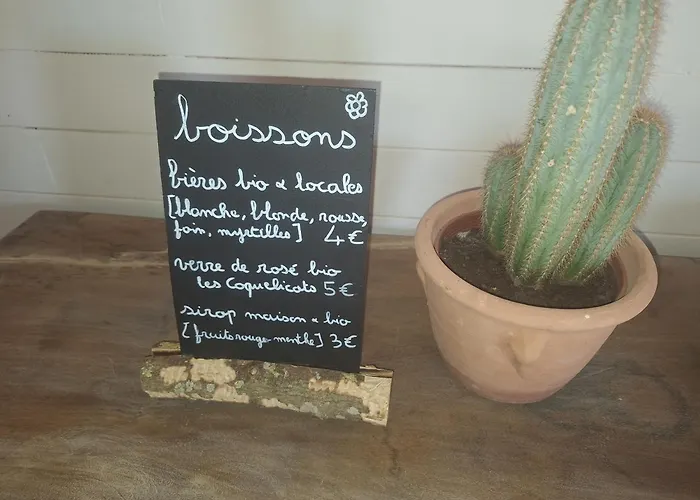 boissons
bières bio & locales
[blanche, blonde, rousse,
foin, myrtilles] 4€
verre de rosé bio
les Coquelicots 5€
sirop maison & bio
[fruits rouge menthe] 3€